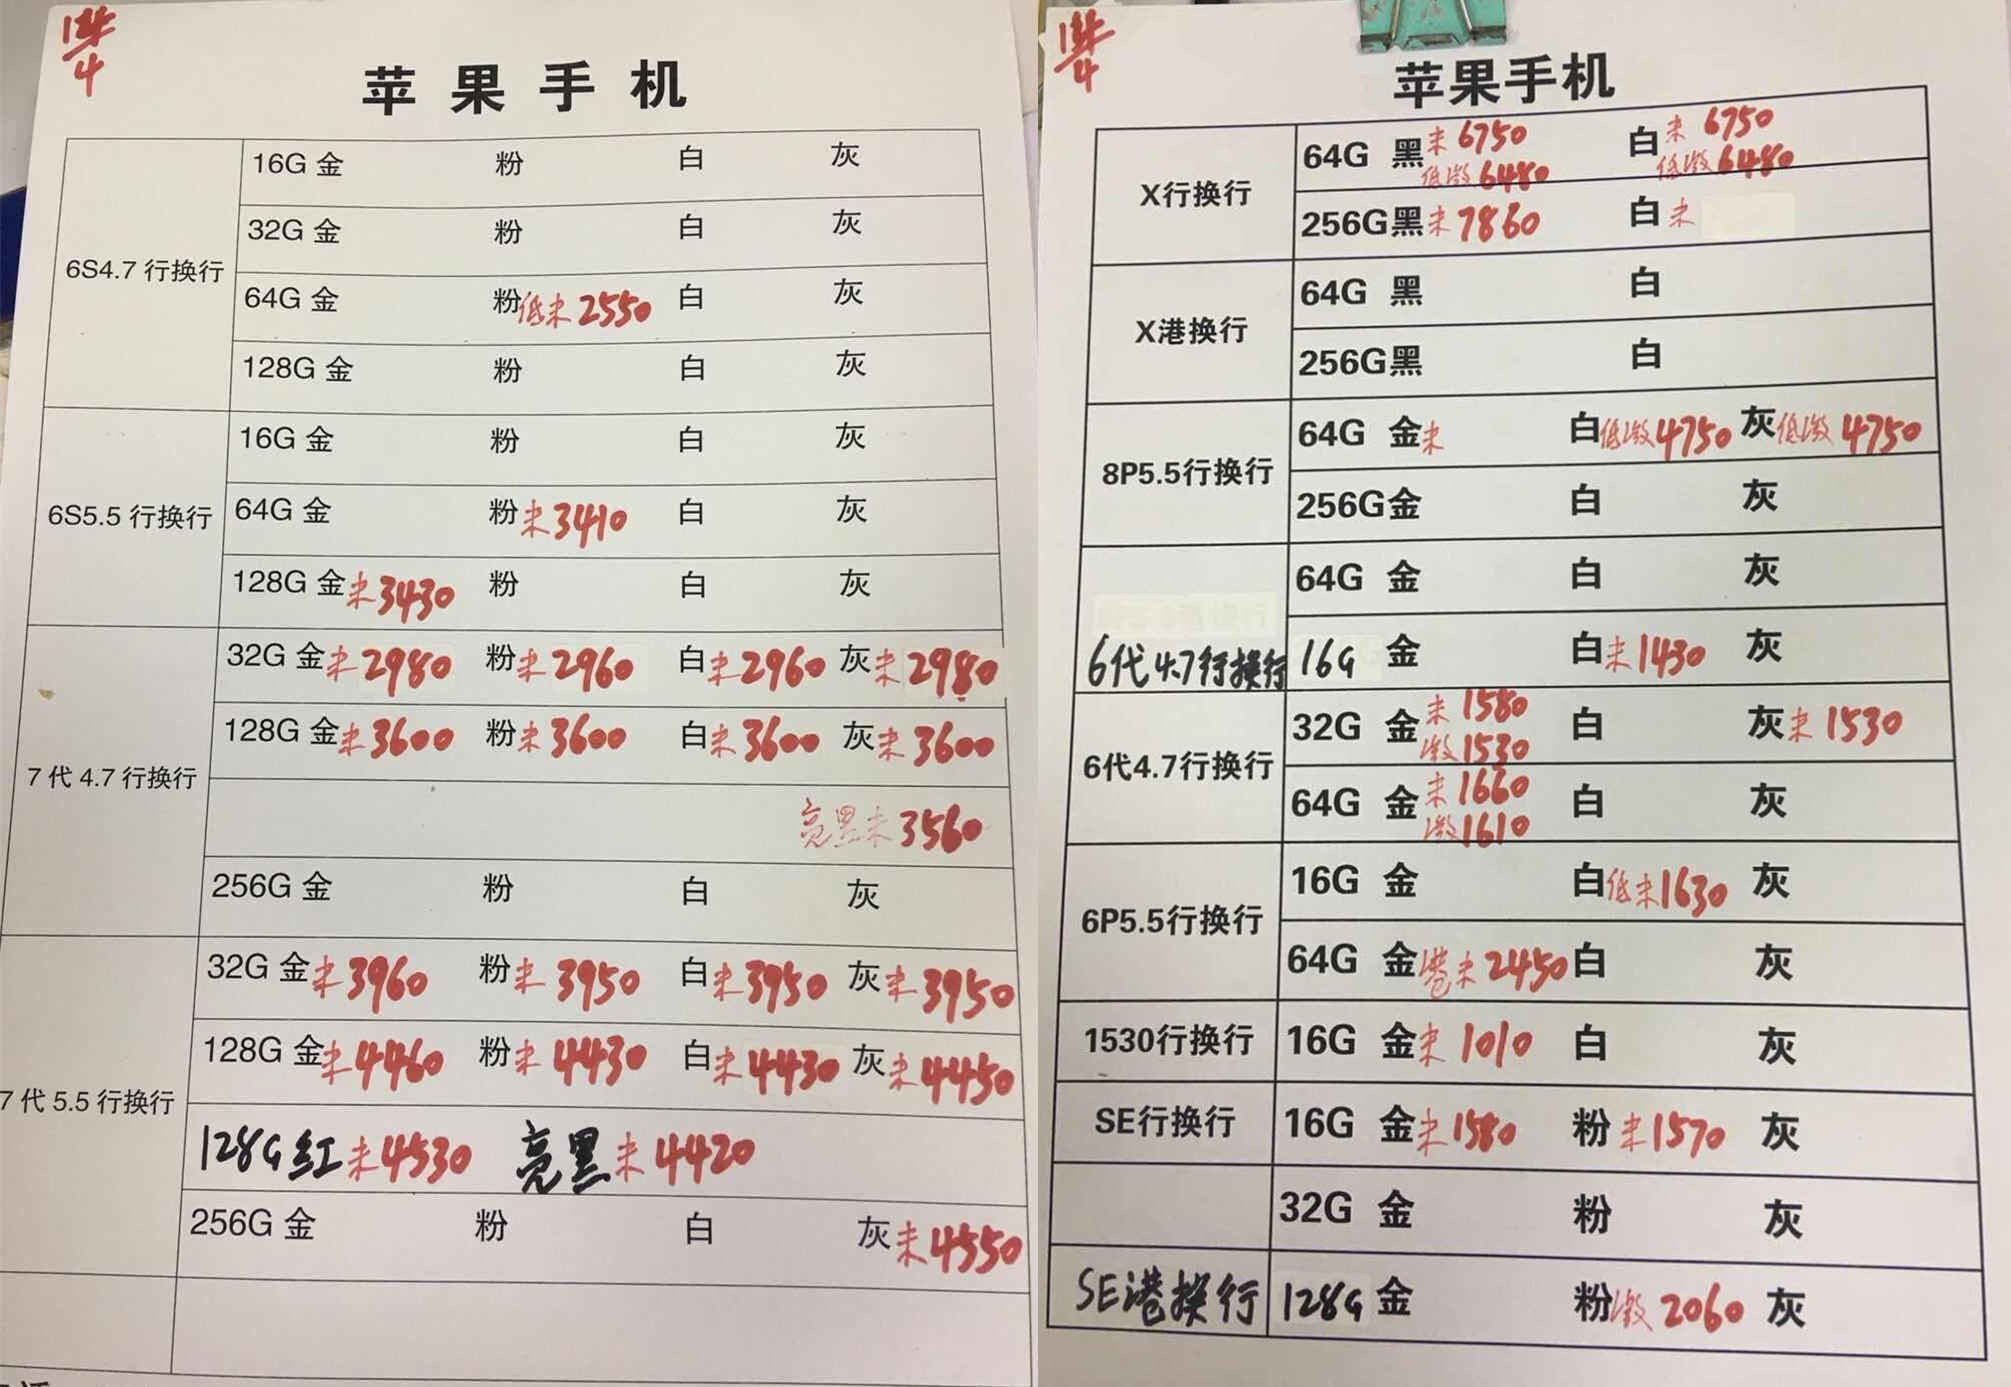 4
苹果手机
6S4.7 行换行
16G 金 粉 白 灰
32G 金 粉 白 灰
64G 金 粉 低未 2550 白 灰
128G 金 粉 白 灰
6S5.5 行换行
16G 金 粉 白 灰
64G 金 粉 未 3410 白 灰
128G 金 未 3430 粉 白 灰
7代 4.7 行换行
32G 金 未 2980 粉 未 2960 白 未 2960 灰 未 2980
128G 金 未 3600 粉 未 3600 白 未 3600 灰 未 3600
亮黑 未 3560
256G 金 粉 白 灰
7代 5.5 行换行
32G 金 未 3960 粉 未 3950 白 未 3950 灰 未 3950
128G 金 未 4460 粉 未 4430 白 未 4430 灰 未 4450
128G 红 未 4530 亮黑 未 4420
256G 金 粉 白 灰 未 4550
4
苹果手机
X行换行
64G 黑 未 6750 白 未 6750
低激 6480 低激 6480
256G 黑 未 7860 白 未
X港换行
64G 黑 白
256G 黑 白
8P5.5行换行
64G 金 未 白 低激 4750 灰 低激 4750
256G 金 白 灰
64G 金 白 灰
6代 4.7行换行
16G 金 白 未 1430 灰
6代4.7行换行
32G 金 未 1580 白 灰 未 1530
激 1530
64G 金 未 1660 白 灰
激 1610
6P5.5行换行
16G 金 白 低未 1630 灰
64G 金 港未 2450 白 灰
1530行换行
16G 金 未 1010 白 灰
SE行换行
16G 金 未 1580 粉 未 1570 灰
32G 金 粉 灰
SE港换行
128G 金 粉 激 2060 灰